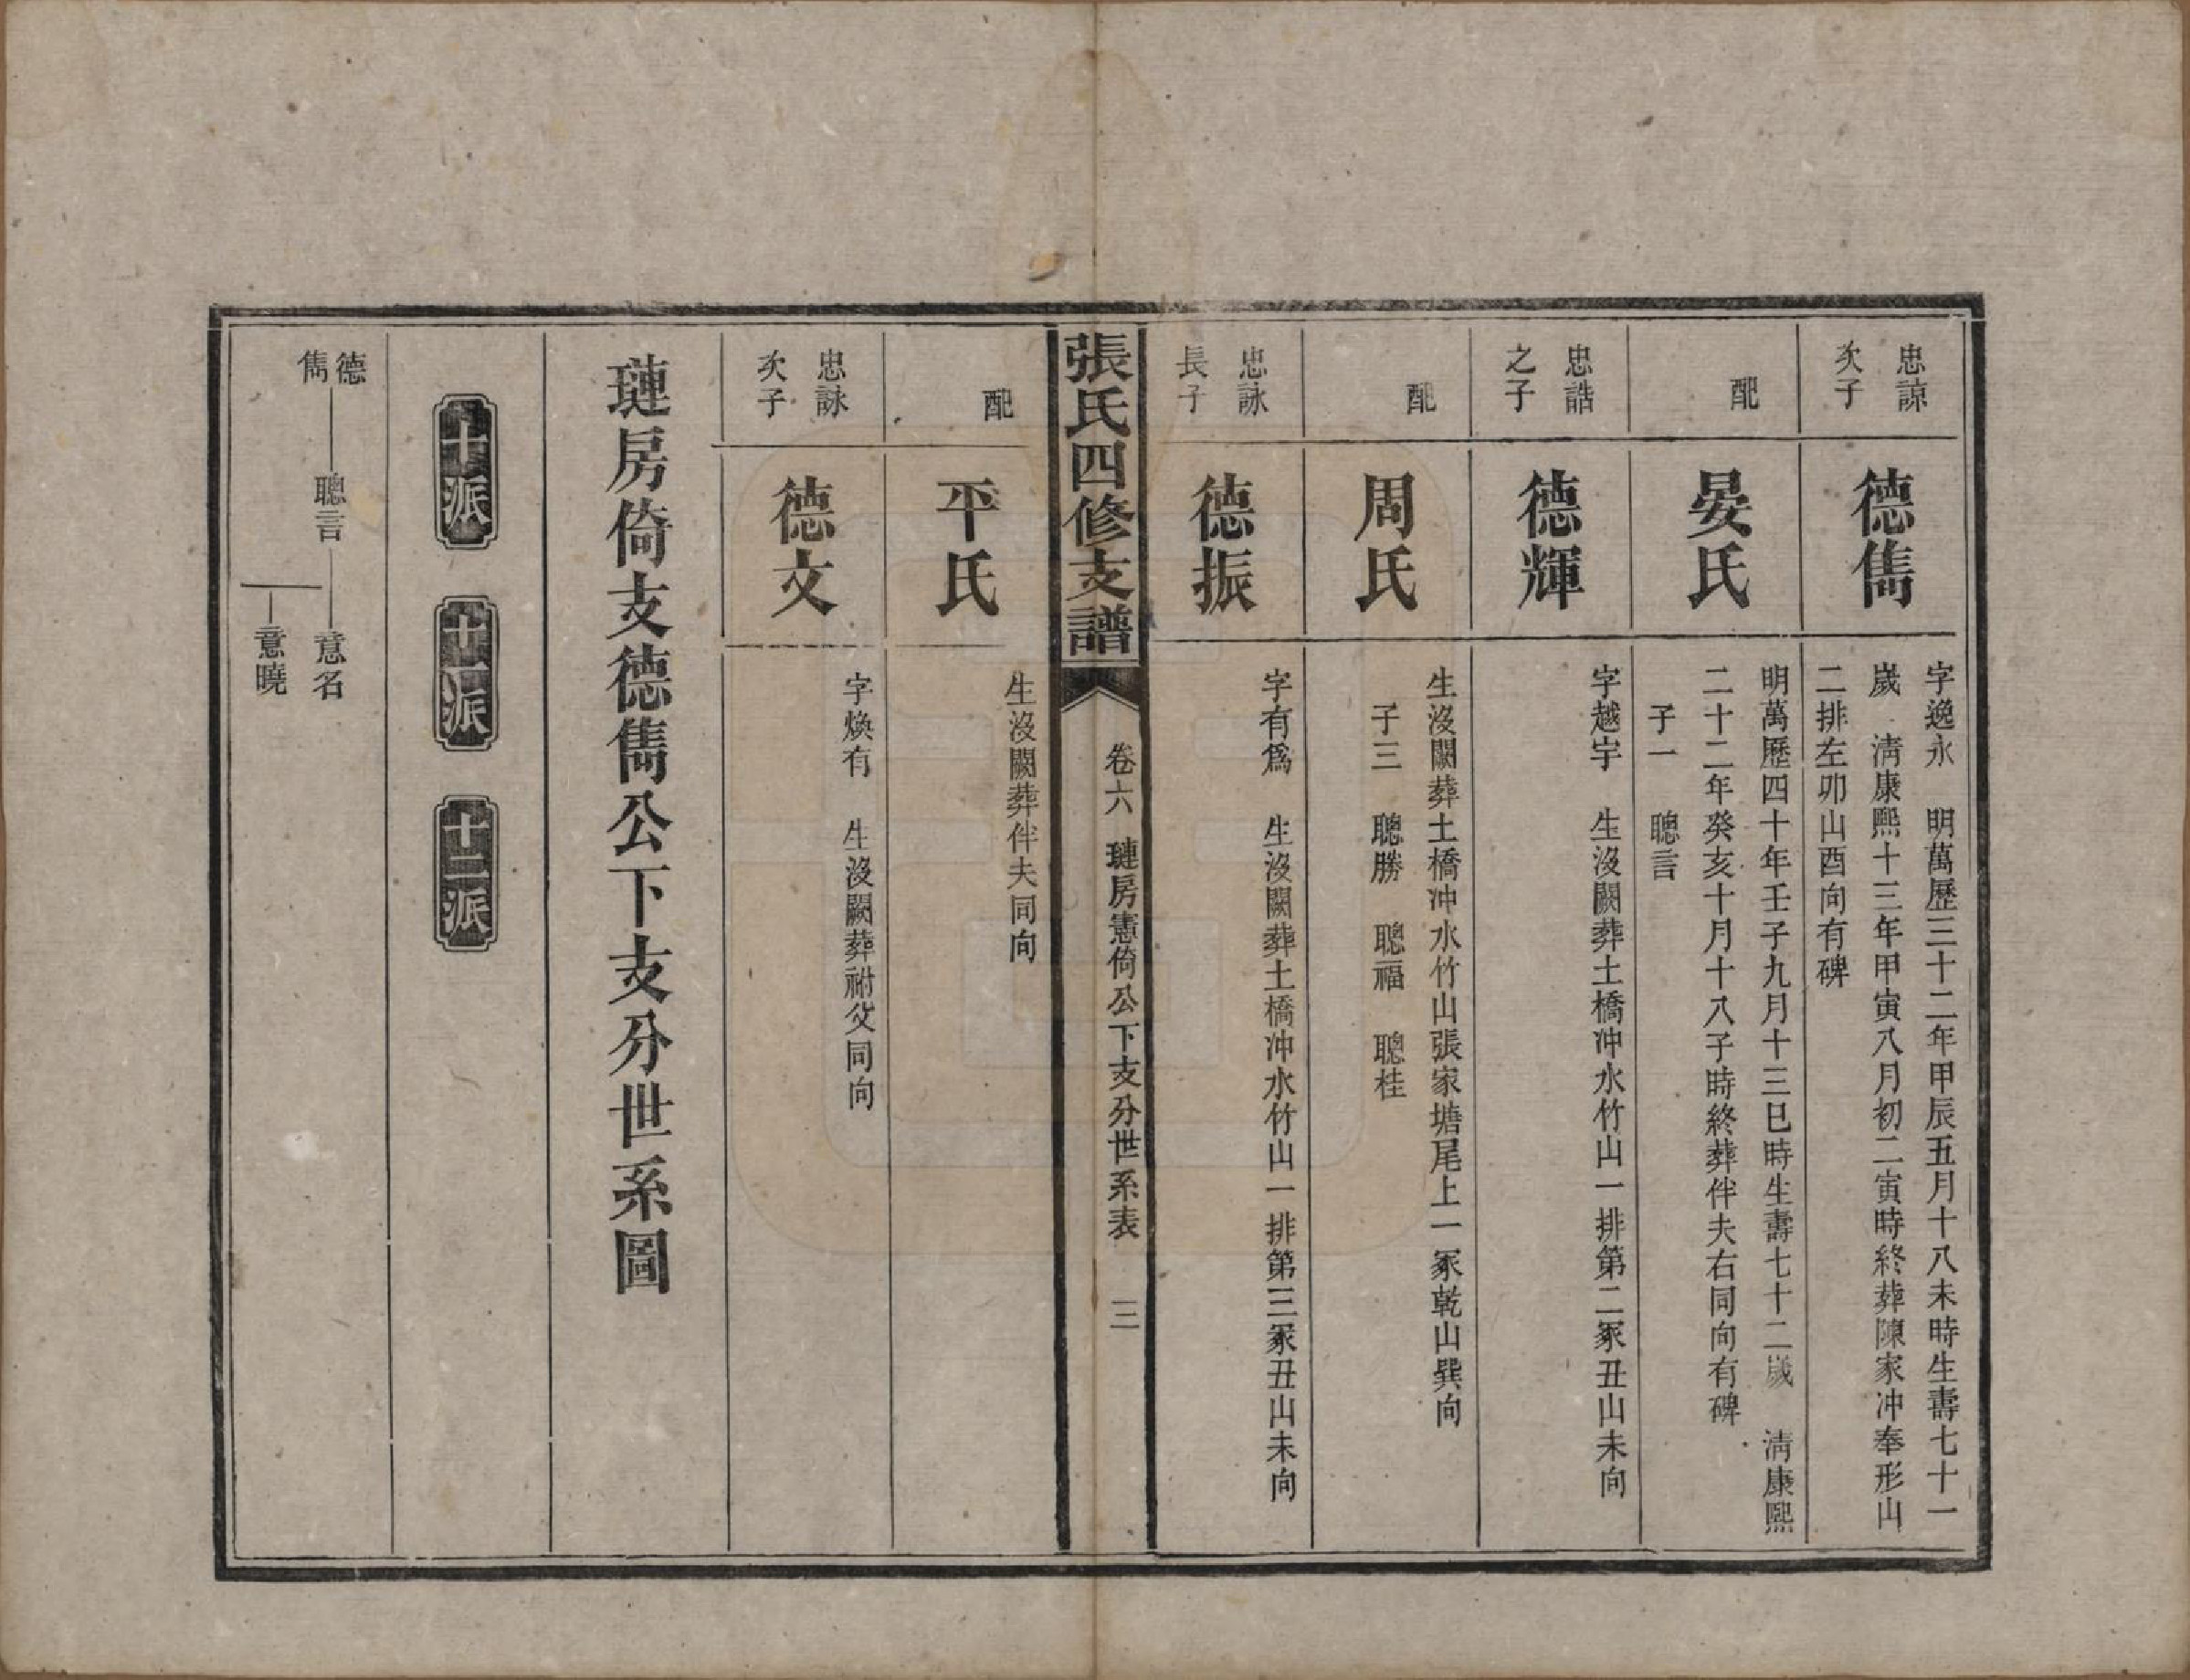 忠諒
次子
德雋
字逸永　明萬歷三十二年甲辰五月十八未時生壽七十一
歲　淸康熙十三年甲寅八月初二寅時終葬陳家冲奉形山
二排左卯山酉向有碑
配
晏氏
明萬歷四十年壬子九月十三巳時生壽七十二歲　淸康熙
二十二年癸亥十月十八子時終葬伴夫右同向有碑
子一　聰言
忠誥
之子
德輝
字越宇　生沒闕葬土橋冲水竹山一排第二冢丑山未向
配
周氏
生沒闕葬土橋冲水竹山張家塘尾上一冢乾山巽向
子三　聰勝　聰福　聰桂
忠詠
長子
德振
字有爲　生沒闕葬土橋冲水竹山一排第三冢丑山未向
張氏四修支譜
卷六　璉房憲倚公下支分世系表　三
配
平氏
生沒闕葬伴夫同向
忠詠
次子
德文
字煥有　生沒闕葬祔父同向
璉房倚支德雋公下支分世系圖
十派　十一派　十二派
德雋
聰言
意名
意曉